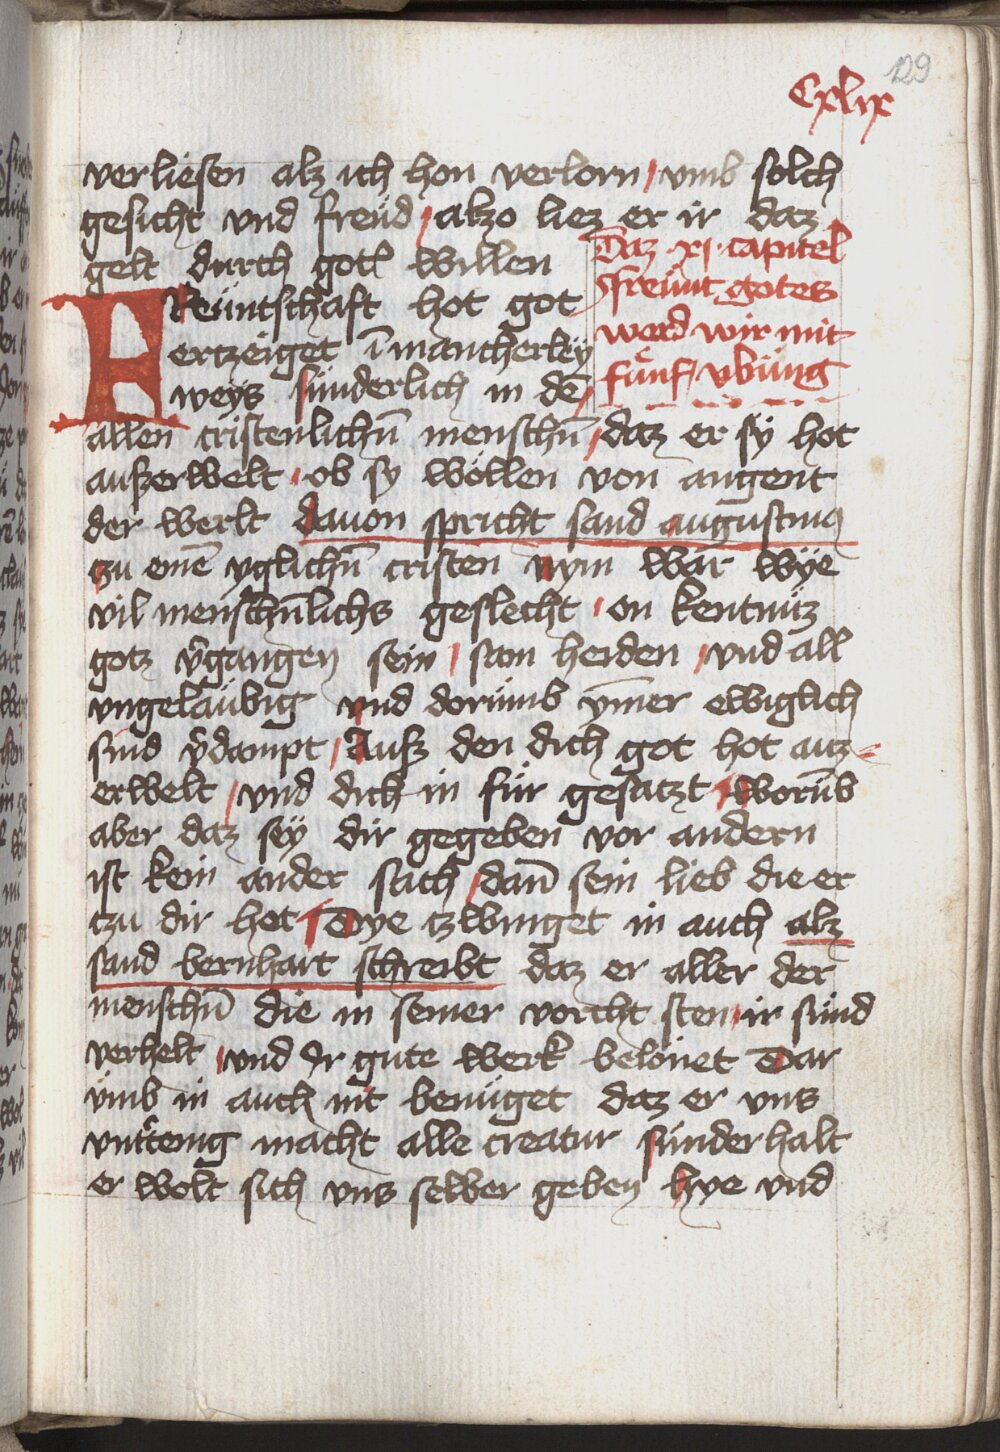 129
Cxlix
verliesen alz ich hon verlorn / vmb solch
gesicht vnd freüd / alzo liez er ir daz
gelt durch gotz willen
Daz xj. capitel
Freünt gotes
werd wir mit
fünf / vbüng
FReüntschaft hot got
ertzeiget ī mancherley
weÿs sünderlich in dē /
allen cristenlichn̄ menschn̄ / daz er sÿ hot
außerwelt / ob sy wöllen von angent
der werlt dauon spricht sand augustinꝯ
czu einē yglichn̄ cristen nym war wÿe
vil menschn̄lichs geslecht / on kentnüz
gotz v̄gangen sein / sam heiden / vnd all
vngeläubig vnd dorümb ȳmer ewiglich
sind v̄dampt / Auß den dich got hot auz-
erwelt / vnd dich in für gesatzt / Worūb
aber daz sÿ dir gegeben vor andern
ist kein ander sach / dan̄ sein lieb die er
czu dir het / Dye czwinget in auch alz
sand bernhart schreibt daz er aller der
menschn̄ die in seiner vorcht sten / ir sünd
verhelt / vnd Ir gute werk belönet Dar
vmb in auch nit benüget daz er vns
vntt̄enig macht alle creatur sünder halt
er wolt sich vns selber geben hye vnd